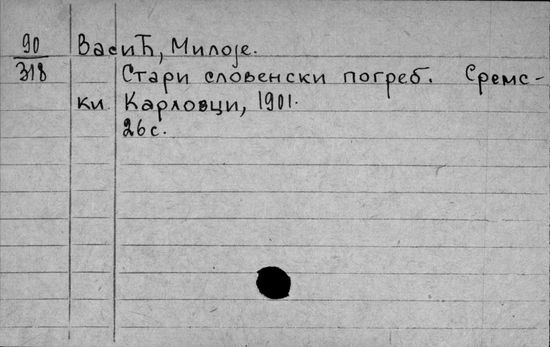 90 Васић, Милоје.
318 Стари словенски погреб. Сремс-
ки Карловци, 1901.
26 с.